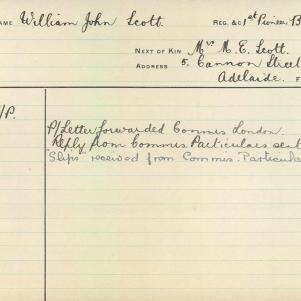 NAME William John Scott. REG. &C 1st Pioneer B
NEXT OF KIN Mrs M. E. Scott.
ADDRESS 5, Cannon Street
Adelaide. F
/P.
P/Letter forwarded Commis London.
Reply from Commis. Particulars sent
"Slips" received from Commis. Particula